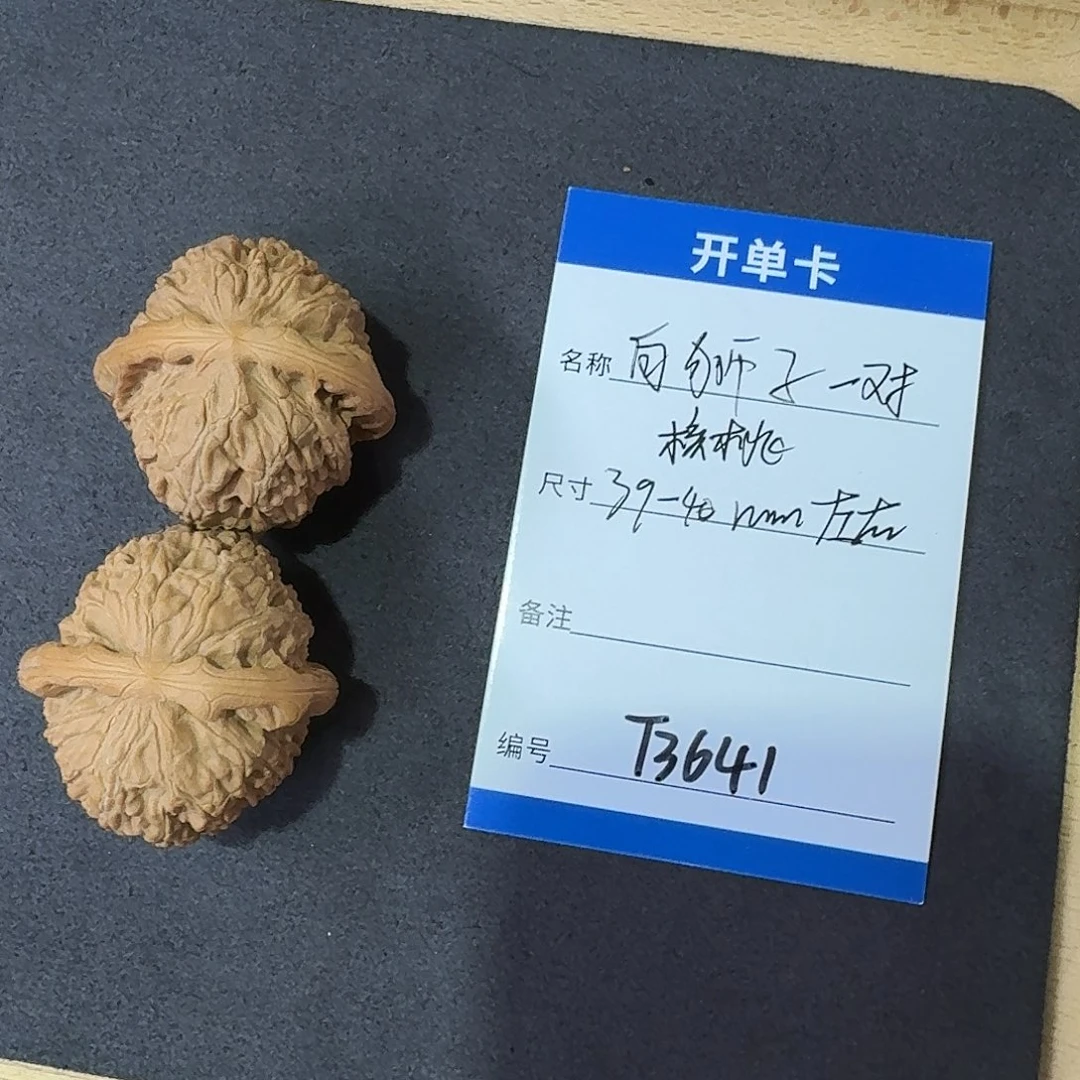 开单卡
名称 白狮子一对
核桃
尺寸 39-40 mm 左右
备注
编号 T3641